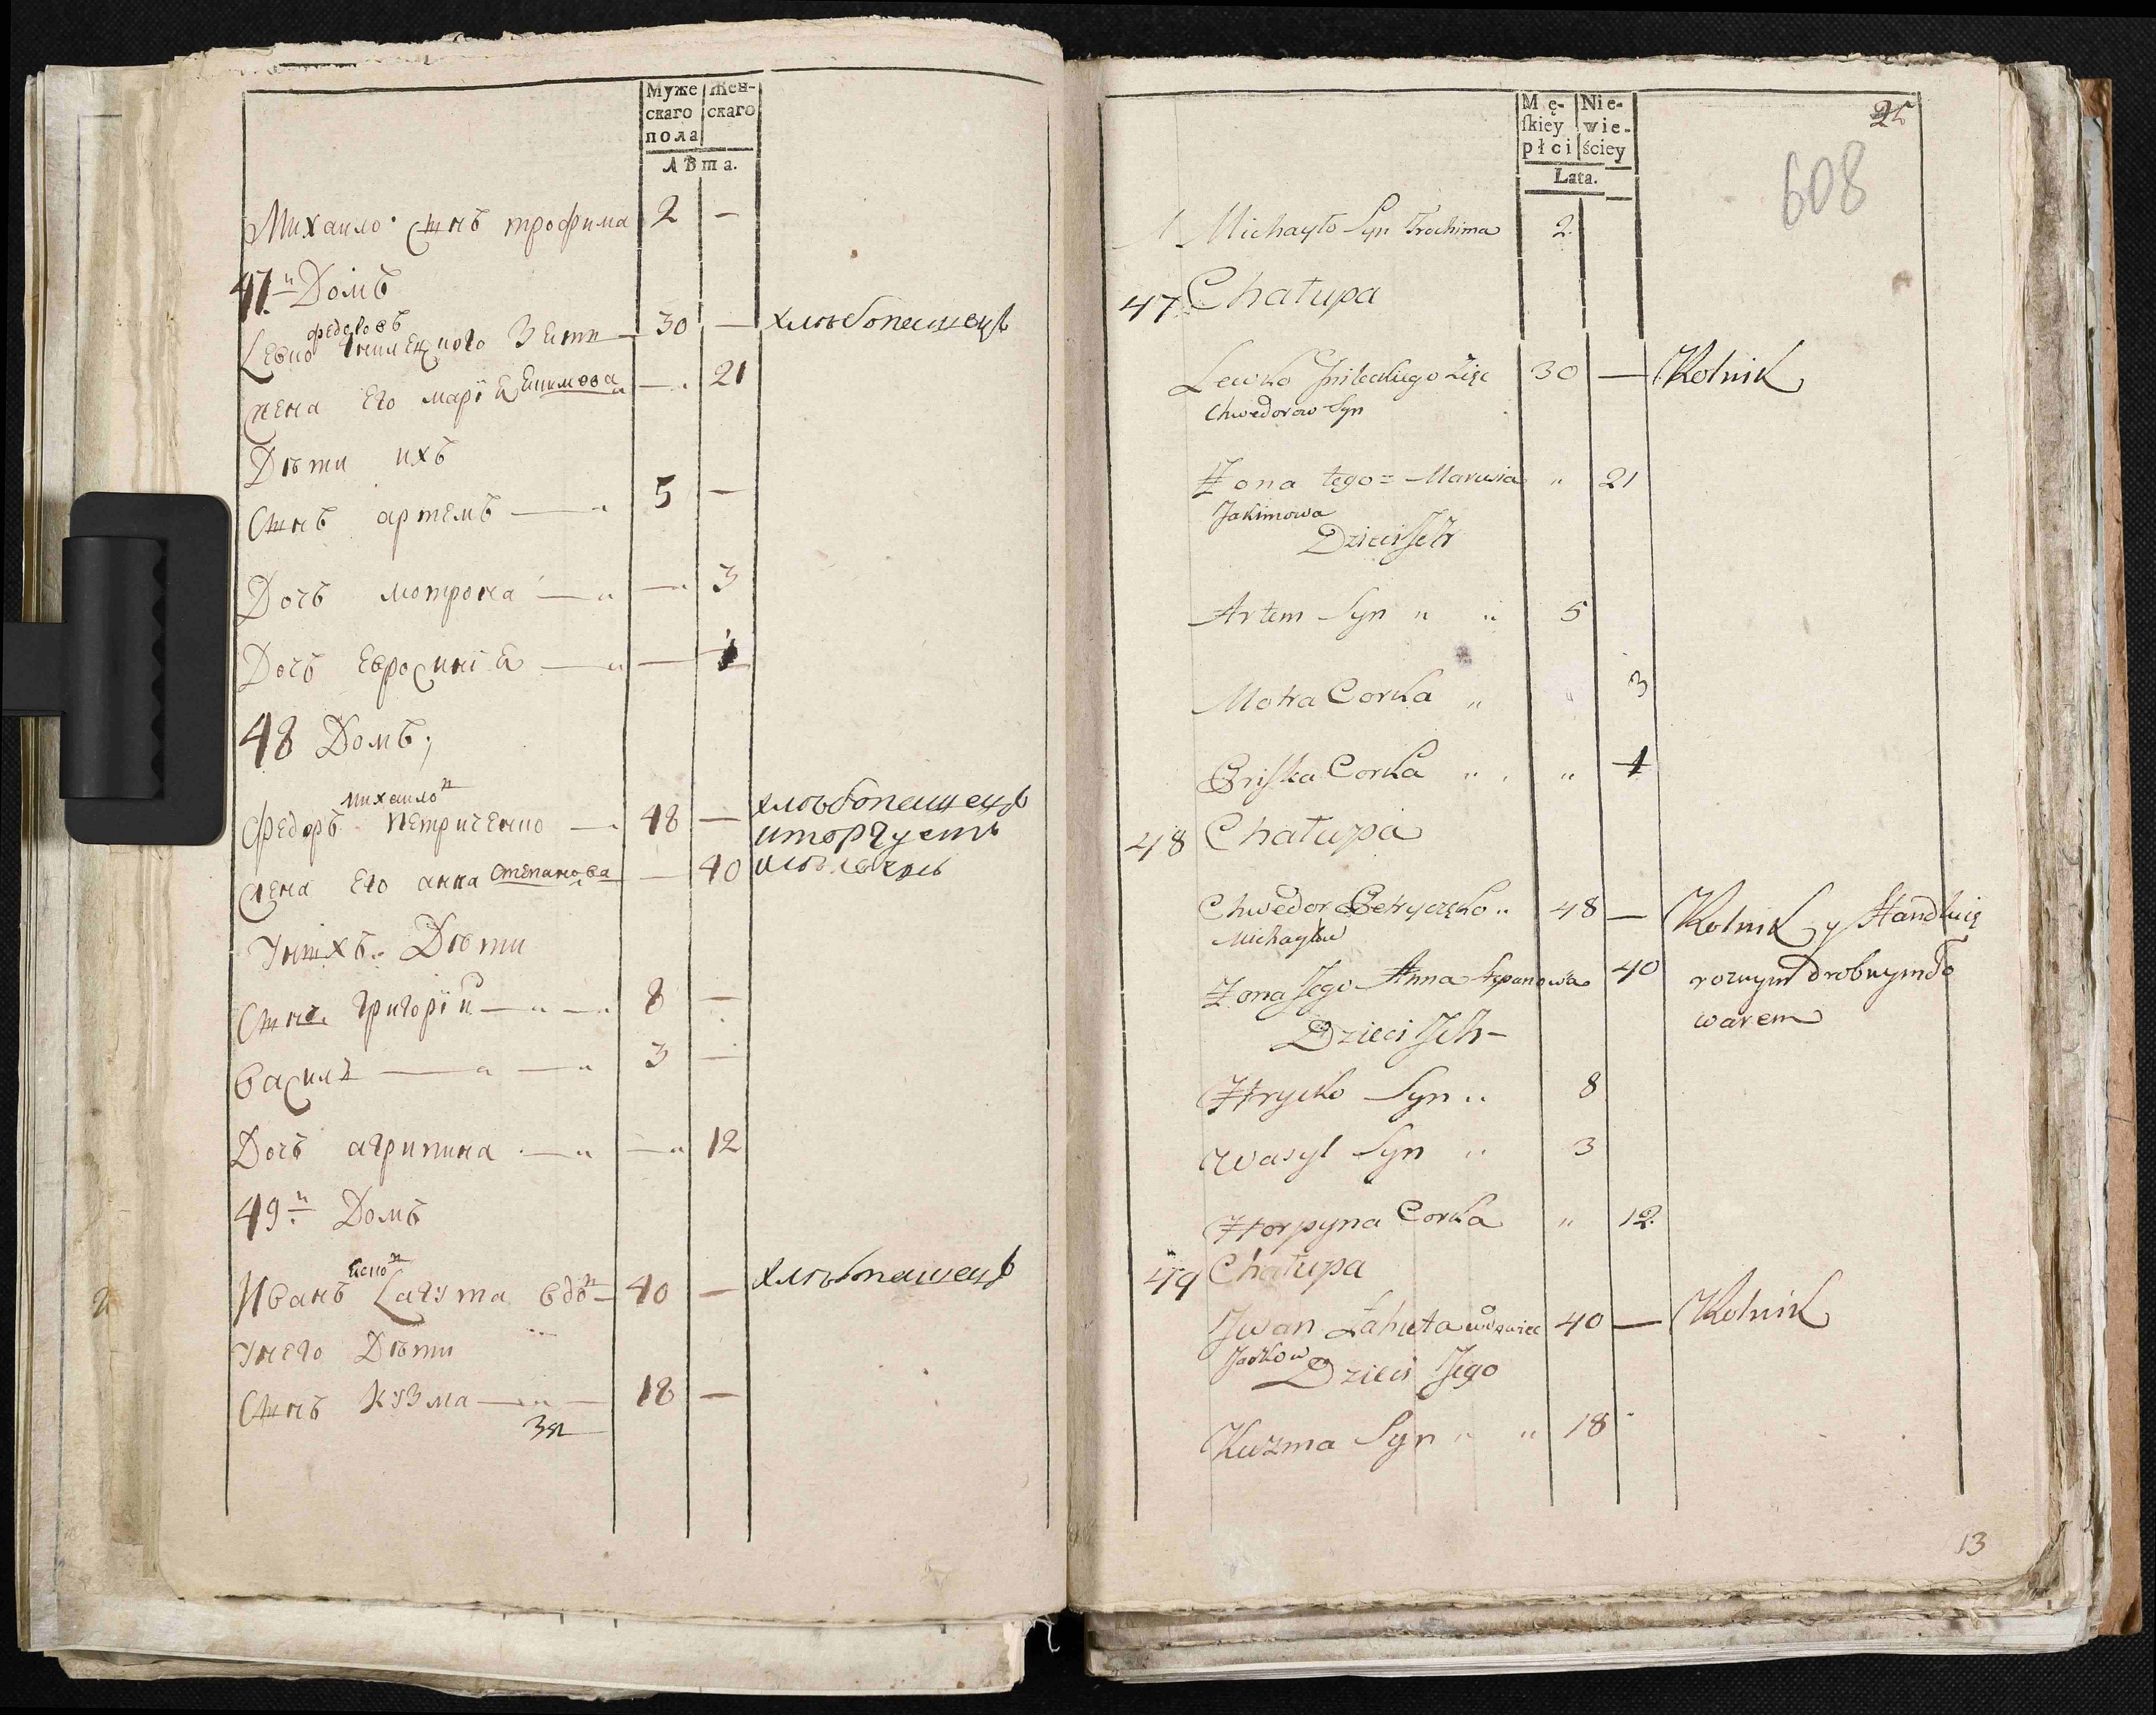 Муже Жен-
скаго скаго
пола
Лѣта.
Михаило Сынъ трофима 2 —
47.й Домъ
федоровъ
Левко Гнилецкого Зять — 30 — хлѣбопашецъ
жена Его маріѧ Якимова — 21
Дѣти ихъ
Сынъ артемъ — 5 —
Дочь мотрона — — 3
Дочь Евросиніѧ — — 1
48 Домъ;
михаило в
федоръ петриченко — 48 — хлѣбопашецъ
и торгуетъ
жена Его анна степанова — 40
У нихъ Дѣти
Сынъ григорій — 8 —
василь — 3 —
Дочь агрипина — — 12
49й Домъ
Иванъ Лагута вдо в — 40 — хлѣбопашецъ
У него Дѣти
Сынъ кузма — 18 —
Mę- Nie-
ſkiey wie-
płci ściey
Lata.
25
608
Michayło Syn Trochima 2.
47 Chałupa
Lewko Hnileckiego Zięc 30 — Rolnik
Chwedorow Syn
Zona tego = Marusia " 21
Jakimowa
Dzieci Jch
Artem Syn " " 5
Motra Corka " " 3
Pryska Corka " " " 1
48 Chałupa
Chwedor Petryczęko " 48 — Rolnik y Handluię
Michayłow
Zona Jego Anna Stepanowa 40 roznym drobnym To
warem
Dzieci Jch —
Hrycko Syn " 8
Wasyl Syn " 3
Horpyna Corka " 12.
49 Chałupa
Jwan Łahuta wdowiec 40 — Rolnik
Jaskow
Dzieci Jego
Kuzma Syn " " 18
13